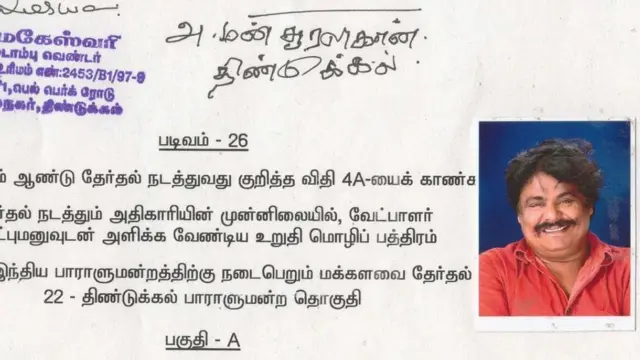 மகேஸ்வரி
வெண்டர்
உரிமம் எண்:2453/B1/97-9
பெல் பெர்க் ரோடு
நகர்,திண்டுக்கல்
அ. மன்சூரலிகான்.
திண்டுக்கல்.
படிவம் - 26
ஆண்டு தேர்தல் நடத்துவது குறித்த விதி 4A-யைக்
நடத்தும் அதிகாரியின் முன்னிலையில், வேட்பாளர்
அளிக்க வேண்டிய உறுதி மொழிப் பத்திரம்
இந்திய பாராளுமன்றத்திற்கு நடைபெறும் மக்களவை தேர்தல்
22 - திண்டுக்கல் பாராளுமன்ற தொகுதி
பகுதி - A